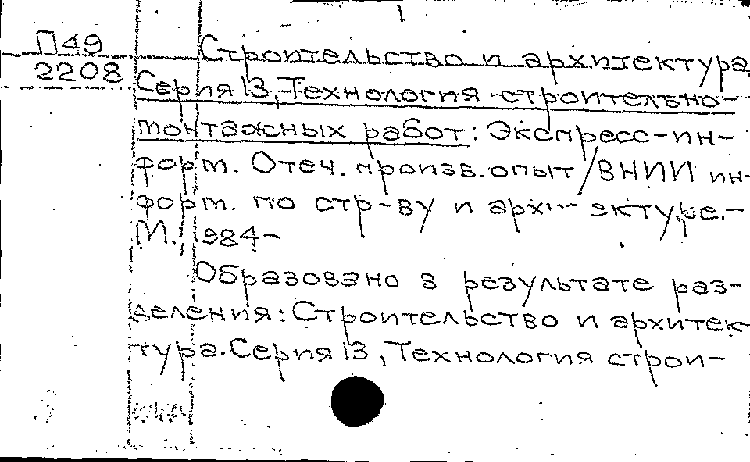 П49
2208
Строительство и архитектура
Серия 13, Технология строительно-
монтажных работ: Экспресс-ин-
форм. Отеч. произв. опыт/ВНИИ ин-
форм. по стр-ву и архитектуре.-
М., 1984-
Образовано в результате раз-
деления: Строительство и архитек-
тура. Серия 13, Технология строи-